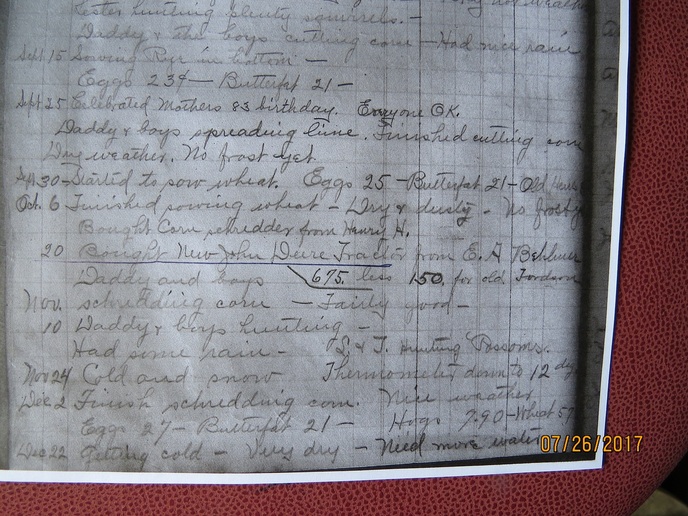 Lester hunting plenty squirrels. -
Daddy & the boys cutting corn - Had nice rain
Sept 15 Sowing Rye in bottom -
Eggs 23¢ - Butterfat 21 -
Sept 25 Celebrated Mothers 83 birthday. Everyone OK.
Daddy & boys spreading lime. Finished cutting corn
Dry weather. No frost yet
Sept. 30 - Started to sow wheat. Eggs 25 - Butterfat 21 - Old Hens
Oct. 6 Finished sowing wheat - Dry & dusty - No frost
Bought Corn schredder from Henry H.
20 Bought New John Deere Tractor from E. A
Daddy and boys 675. less 150. for old Fordson
Nov. schredding corn - Fairly good -
10 Daddy & boys hunting -
Had some rain - L. & T. Hunting Possoms.
Nov 24 Cold and snow Thermometer down to 12 deg
Dec 2 Finish schredding corn. Nice weather
Eggs 27 - Butterfat 21 - Hogs 7.90 - Wheat 57
Dec 22 Getting cold - Very dry - Need more water
07/26/2017